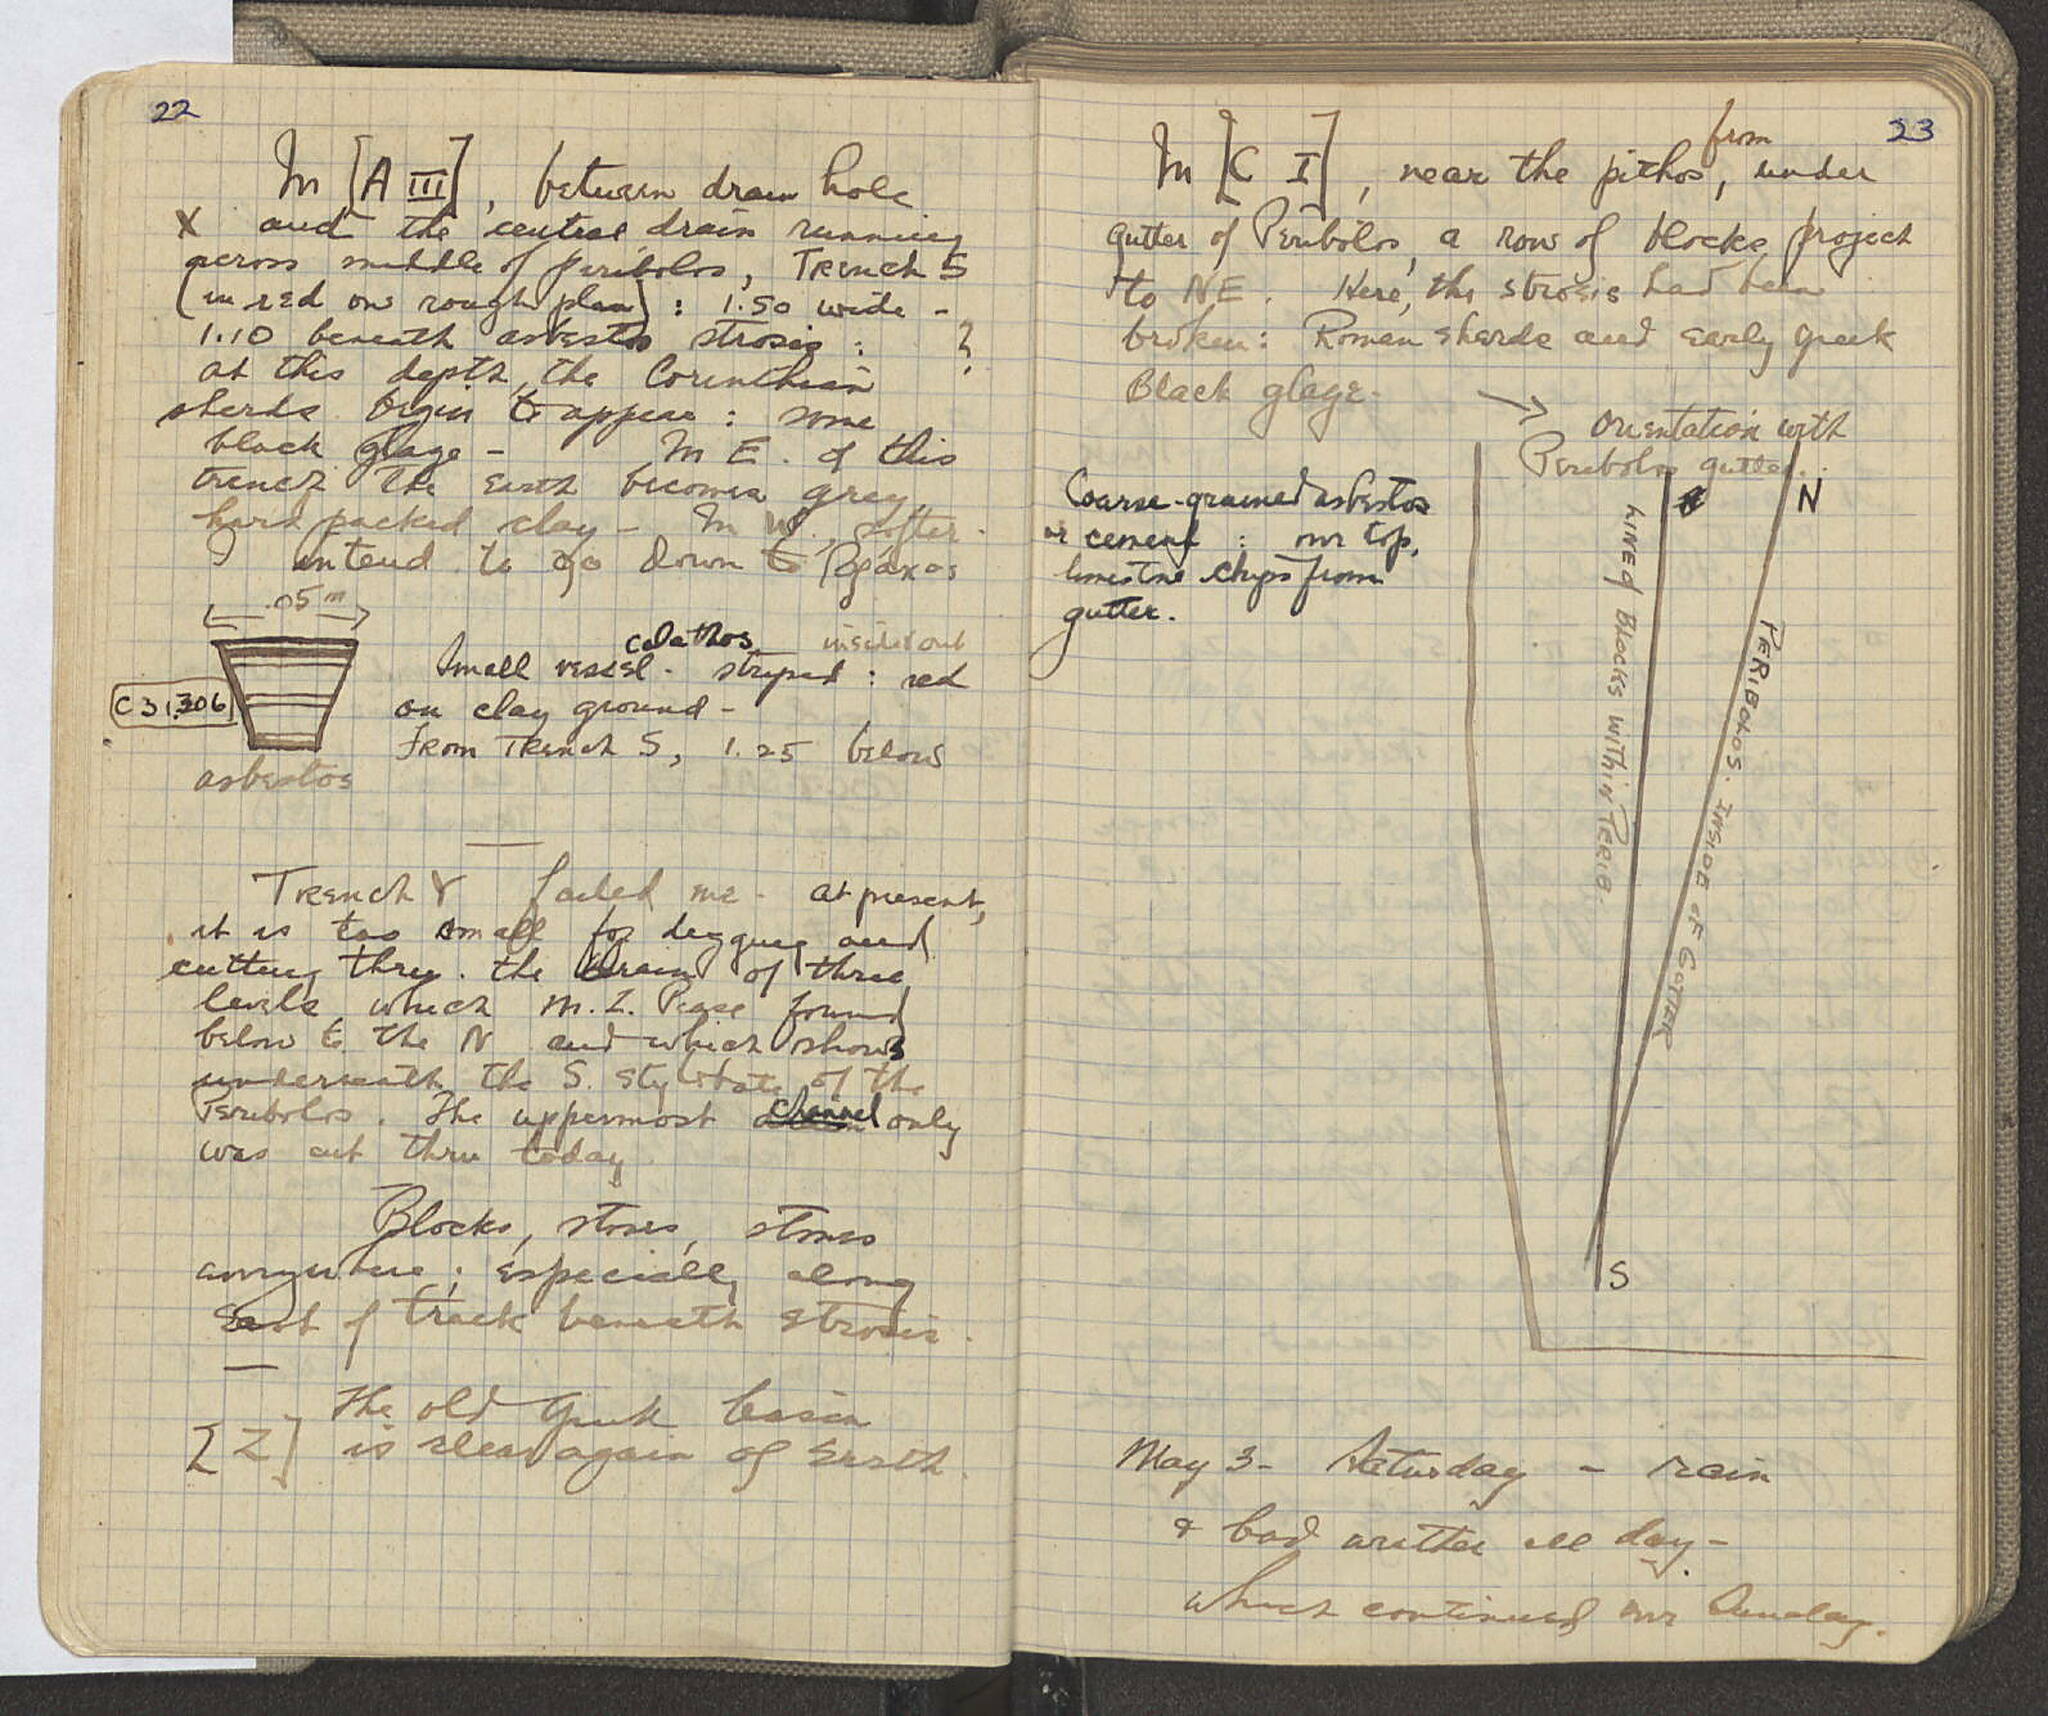 22
In [A III], between drain hole
X and the central drain running
across middle of peribolos, Trench S
(in red on rough plan): 1.50 wide -
1.10 beneath asbestos strosis: ?
at this depth, the Corinthian
sherds begin to appear: some
black glaze - In E. of this
trench the earth becomes grey,
hard packed clay - In W., softer -
I intend to go down to βράχος
.05 m
calathos inside & out
Small vessel - striped: red
C 31.306
on clay ground -
From Trench S, 1.25 below
asbestos
Trench Y failed me - at present,
it is too small for digging and
cutting thru. the drain of three
levels which M.Z. Pease found
below to the N and which shows
underneath the S. stylobate of the
Peribolos. The uppermost channel only
was cut thru today.
Blocks, stones, stones
everywhere; especially along
East of track beneath strosis.
The old Greek basin
[Z] is clear again of Earth.
23
from
In [C I], near the pithos, under
gutter of Peribolos, a row of blocks project
to NE. Here, the strosis had been
broken: Roman sherds and early Greek
Black glaze.
→ Orientation with
Peribolos gutter.
Coarse-grained asbestos
or cement: on top,
limestone chips from
gutter.
N
LINED Blocks within PERIB.
PERIBOLOS. INSIDE OF GUTTER
S
May 3 - Saturday - rain
& bad weather all day -
which continued on Sunday.